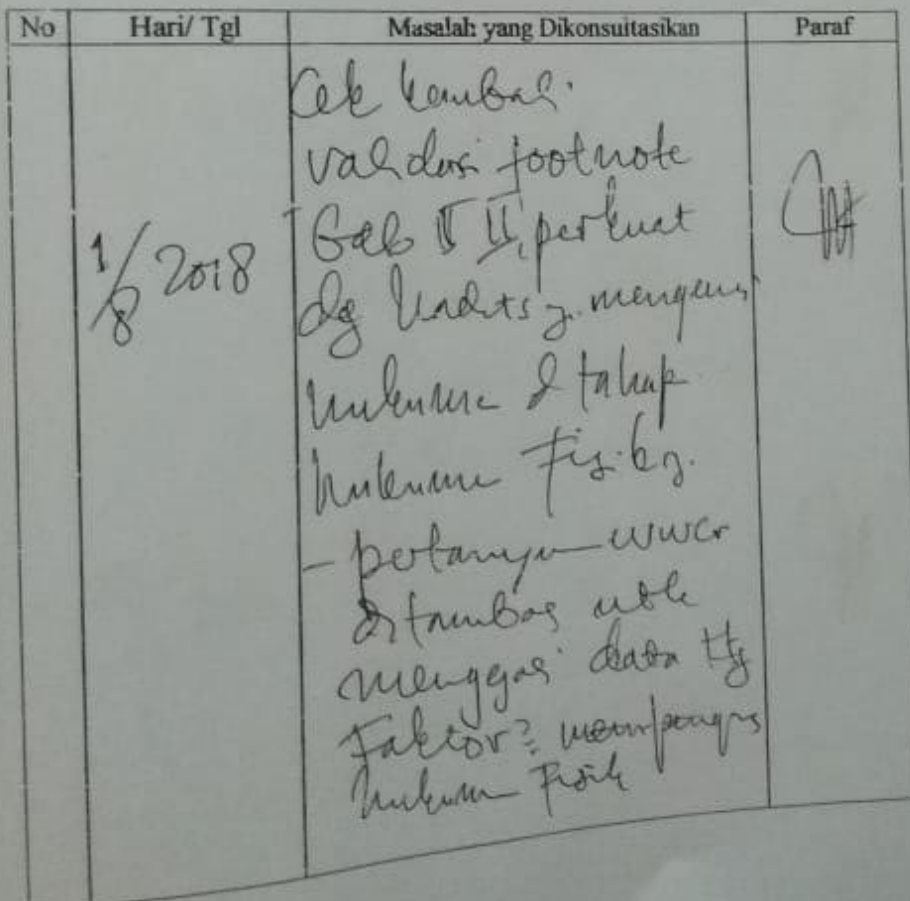 No Hari/ Tgl Masalah yang Dikonsultasikan Paraf
Cek kembali
validasi footnote
1/8 2018
Bab II, perkuat
dg hadits y. mengenai
hukuman & tahap
hukuman Fisik
- pertanyaan wwcr
ditambag utk
menggali data ttg
Faktor² mempengaruhi
hukuman Fisik